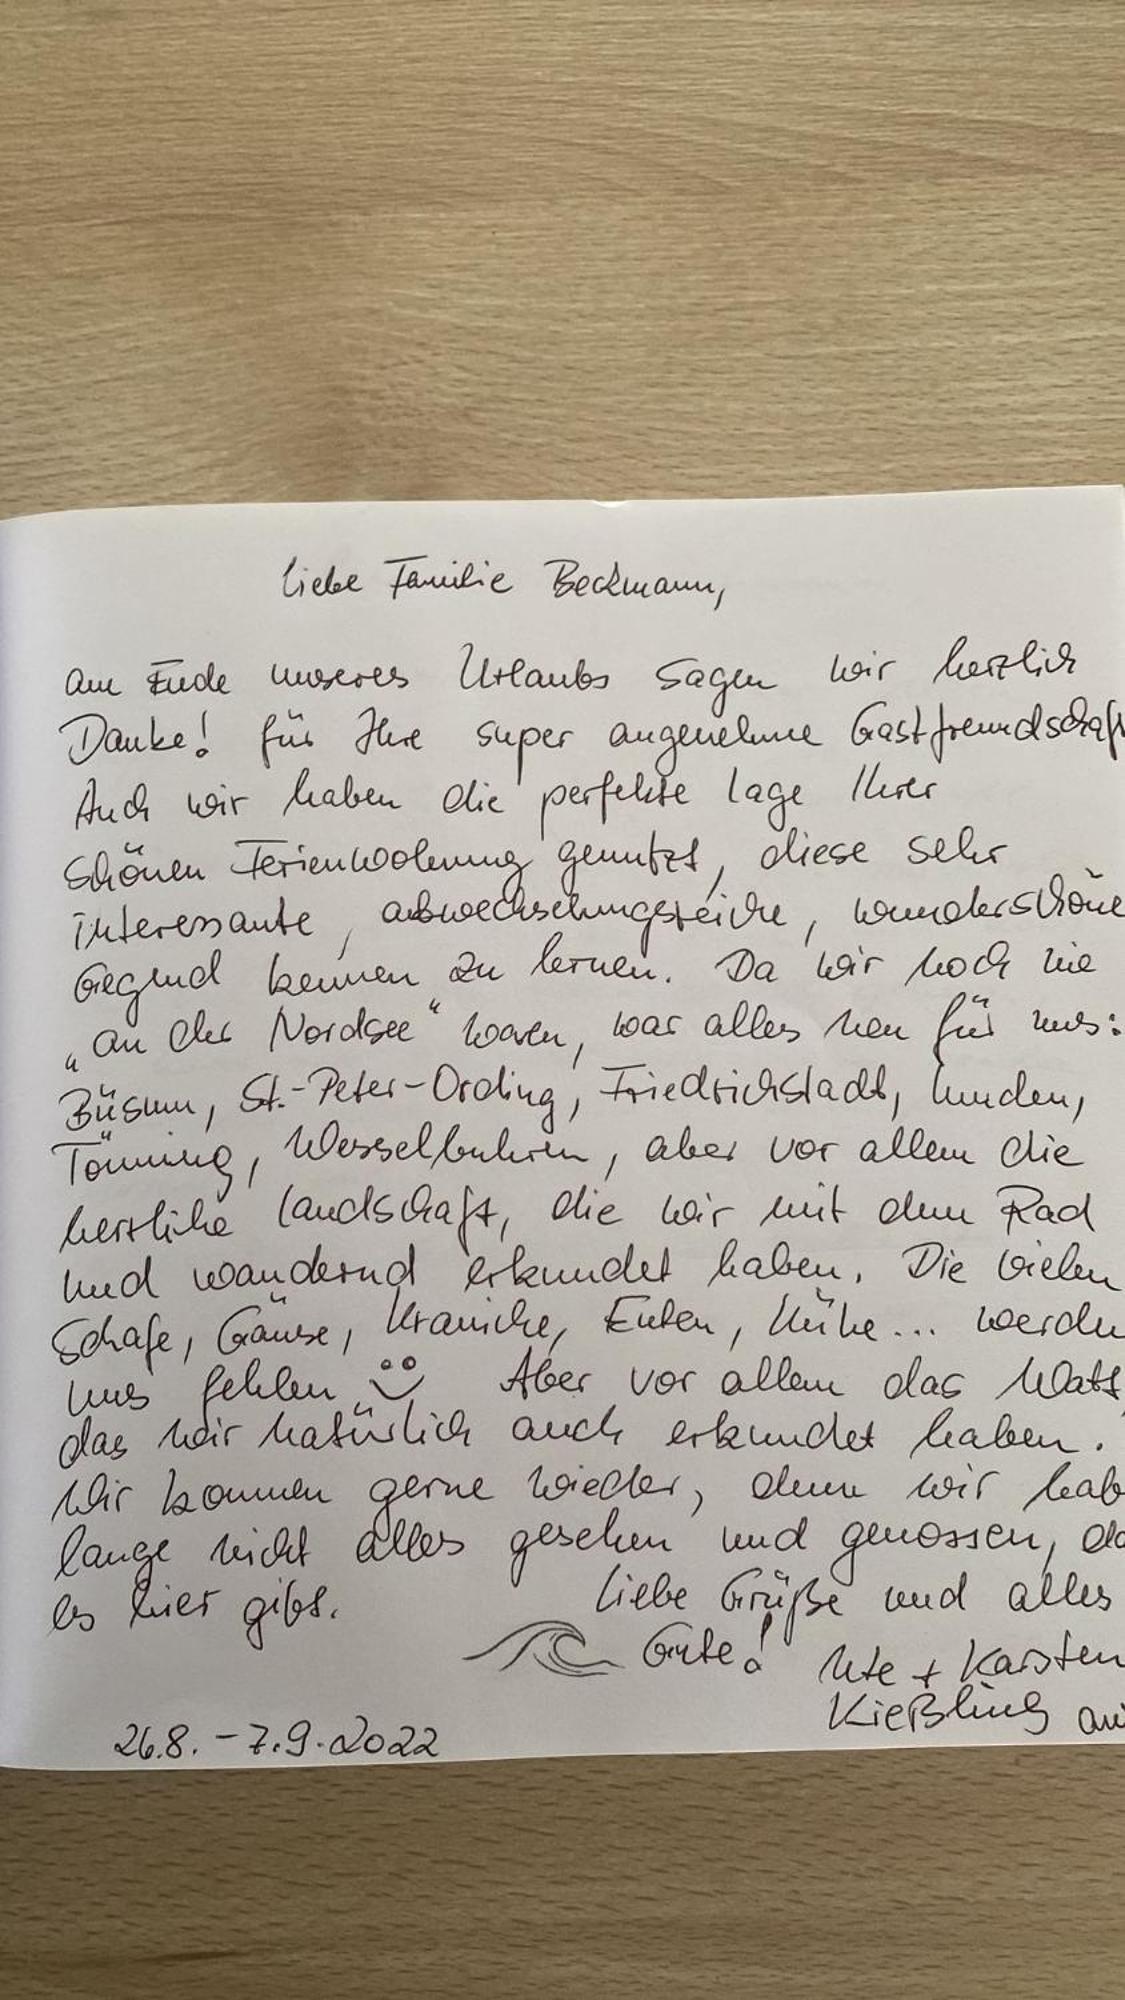 Liebe Familie Beckmann,
am Ende unseres Urlaubs sagen wir herzlich
Danke! für Ihre super angenehme Gastfreundschaf
Auch wir haben die perfekte Lage Ihrer
schönen Ferienwohnung genutzt, diese sehr
interessante, abwechselungsreiche, wunderschöne
Gegend kennen zu lernen. Da wir noch nie
„an der Nordsee“ waren, war alles neu für uns:
Büsum, St.-Peter-Ording, Friedrichstadt, Lunden,
Tönning, Wesselbuhren, aber vor allem die
herrliche Landschaft, die wir mit dem Rad
und wandernd erkundet haben. Die vielen
Schafe, Gänse, Kraniche, Enten, Kühe... werde
uns fehlen Aber vor allem das Watt,
das wir natürlich auch erkundet haben.
Wir kommen gerne wieder, denn wir hab
lange nicht alles gesehen und genossen, da
es hier gibt. Liebe Grüße und alles
Gute! Ute + Karsten
Kießling au
26.8. - 7.9.2022